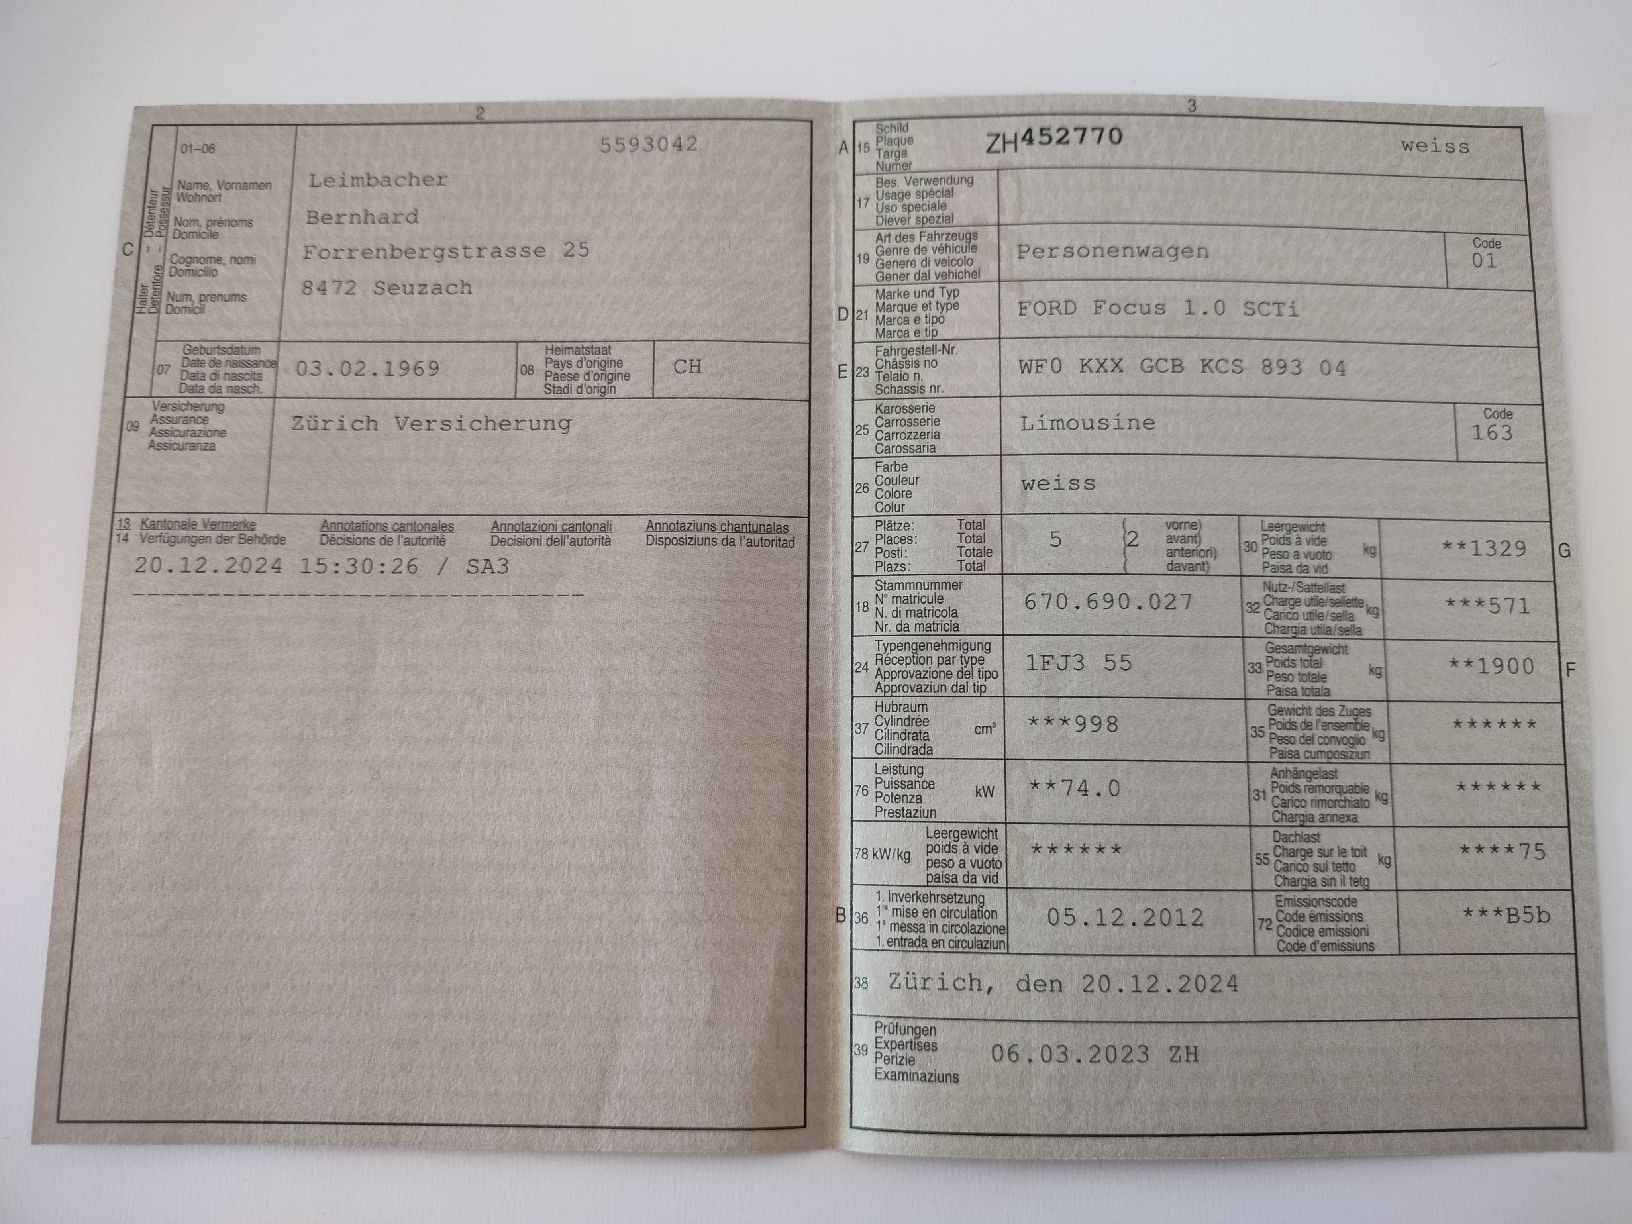 2
01–06
5593042
Détenteur
Possessur
Halter
Detentore
C
Name, Vornamen
Wohnort
Nom, prénoms
Domicile
Cognome, nomi
Domicilio
Num, prenums
Domicil
Leimbacher
Bernhard
Forrenbergstrasse 25
8472 Seuzach
07
Geburtsdatum
Date de naissance
Data di nascita
Data da nasch.
03.02.1969
08
Heimatstaat
Pays d'origine
Paese d'origine
Stadi d'origin
CH
09
Versicherung
Assurance
Assicurazione
Assicuranza
Zürich Versicherung
13 Kantonale Vermerke Annotations cantonales Annotazioni cantonali Annotaziuns chantunalas
14 Verfügungen der Behörde Décisions de l'autorité Decisioni dell'autorità Disposiziuns da l'autoritad
20.12.2024 15:30:26 / SA3
------------------------------
3
A 15
Schild
Plaque
Targa
Numer
ZH452770 weiss
17
Bes. Verwendung
Usage spécial
Uso speciale
Diever spezial
19
Art des Fahrzeugs
Genre de véhicule
Genere di veicolo
Gener dal vehichel
Personenwagen
Code
01
D 21
Marke und Typ
Marque et type
Marca e tipo
Marca e tip
FORD Focus 1.0 SCTi
E 23
Fahrgestell-Nr.
Châssis no
Telaio n.
Schassis nr.
WF0 KXX GCB KCS 893 04
25
Karosserie
Carrosserie
Carrozzeria
Carossaria
Limousine
Code
163
26
Farbe
Couleur
Colore
Colur
weiss
27
Plätze: Total
Places: Total
Posti: Totale
Plazs: Total
5 (2
vorne)
avant)
anteriori)
davant)
30
Leergewicht
Poids à vide
Peso a vuoto
Paisa da vid
kg
**1329 G
18
Stammnummer
N° matricule
N. di matricola
Nr. da matricla
670.690.027
32
Nutz-/Sattellast
Charge utile/sellette
Carico utile/sella
Chargia utila/sella
kg
***571
24
Typengenehmigung
Réception par type
Approvazione del tipo
Approvaziun dal tip
1FJ3 55
33
Gesamtgewicht
Poids total
Peso totale
Paisa totala
kg
**1900 F
37
Hubraum
Cylindrée
Cilindrata
Cilindrada
cm³
***998
35
Gewicht des Zuges
Poids de l'ensemble
Peso del convoglio
Paisa cumposiziun
kg
******
76
Leistung
Puissance
Potenza
Prestaziun
kW
**74.0
31
Anhängelast
Poids remorquable
Carico rimorchiato
Chargia annexa
kg
******
78 kW/kg
Leergewicht
poids à vide
peso a vuoto
paisa da vid
******
55
Dachlast
Charge sur le toit
Carico sul tetto
Chargia sin il tetg
kg
****75
B 36
1. Inverkehrsetzung
1re mise en circulation
1a messa in circolazione
1. entrada en circulaziun
05.12.2012
72
Emissionscode
Code émissions
Codice emissioni
Code d'emissiuns
***B5b
38 Zürich, den 20.12.2024
39
Prüfungen
Expertises
Perizie
Examinaziuns
06.03.2023 ZH